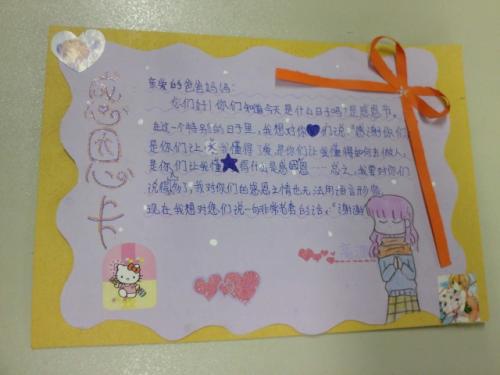 感恩卡
亲爱的爸爸妈妈:
你们好!你们知道今天是什么日子吗?是感恩节。
在这一个特别的日子里,我想对你们说:"感谢你们
是你们让我懂得了爱,是你们让我懂得如何去做人,
是你们让我懂得什么是感恩……总之,我要对你们
说的太多了,我对你们的感恩之情也无法用语言形容
现在我想对您们说一句非常老套的话:"谢谢